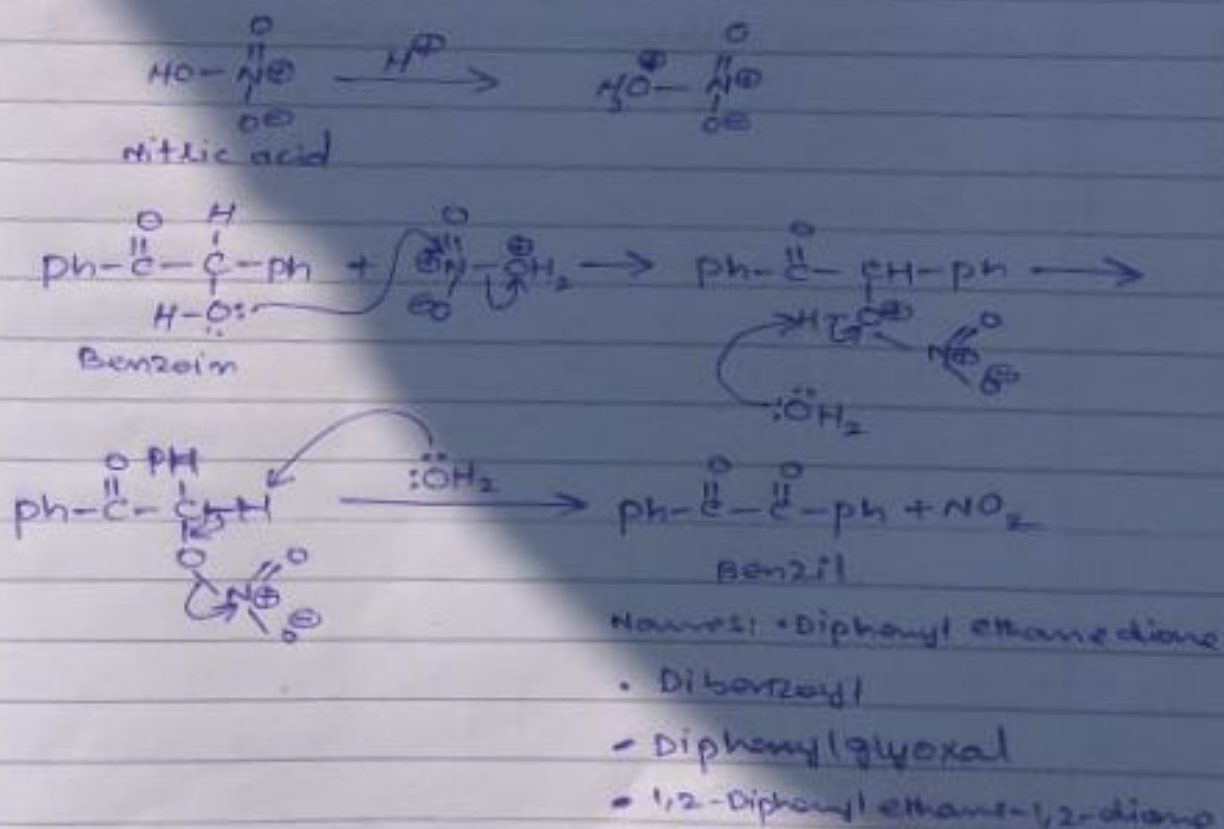 HO-N⊕(=O)-O⊖ —H⊕→ H₂O⊕-N⊕(=O)-O⊖
Nitric acid
Ph-C(=O)-C(H)(-O-H)-Ph + O=N⊕(O⊖)-⊕OH₂ → Ph-C(=O)-CH-Ph →
H-O⊕-N⊕(=O)-O⊖
:ÖH₂
Benzoin
Ph-C(=O)-C(PH)-H :ÖH₂ → Ph-C(=O)-C(=O)-Ph + NO₂
O-N⊕(=O)-O⊖
Benzil
Names: • Diphenyl ethanedione
• Dibenzoyl
- Diphenylglyoxal
• 1,2-Diphenyl ethane-1,2-dione